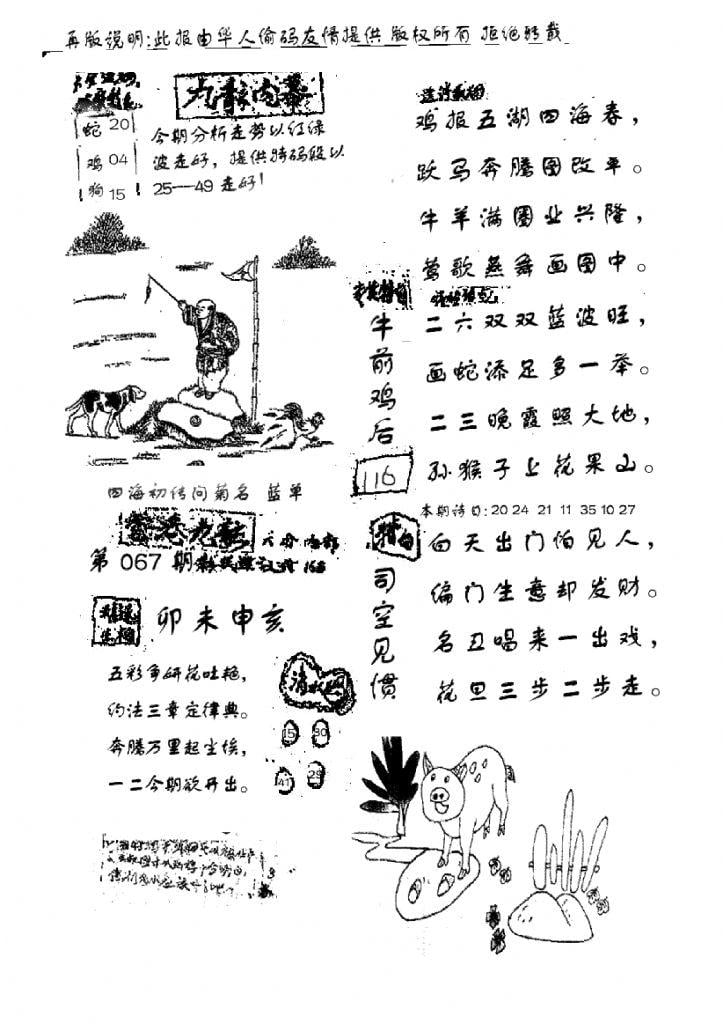 再版说明:此报由华人偷码友情提供 版权所有 拒绝转载
九龍内幕
蛇 20
鸡 04
狗 15
今期分析走势以红绿
波走好，提供特码段以
25—49走好!
鸡报五湖四海春，
跃马奔腾图改革。
牛羊满圈业兴隆，
莺歌燕舞画图中。
二六双双蓝波旺，
画蛇添足多一举。
二三晚霞照大地，
孙猴子上花果山。
本期诗曰:20 24 21 11 35 10 27
牛前鸡后
116
四海初传问菊名 蓝单
第 067 期
卯未申亥
五彩争妍花吐艳，
约法三章定律典。
奔腾万里起尘埃，
一二今期欲开出。
15 30
41 29
特白
司空见惯
白天出门怕见人，
偏门生意却发财。
名丑唱来一出戏，
花旦三步二步走。